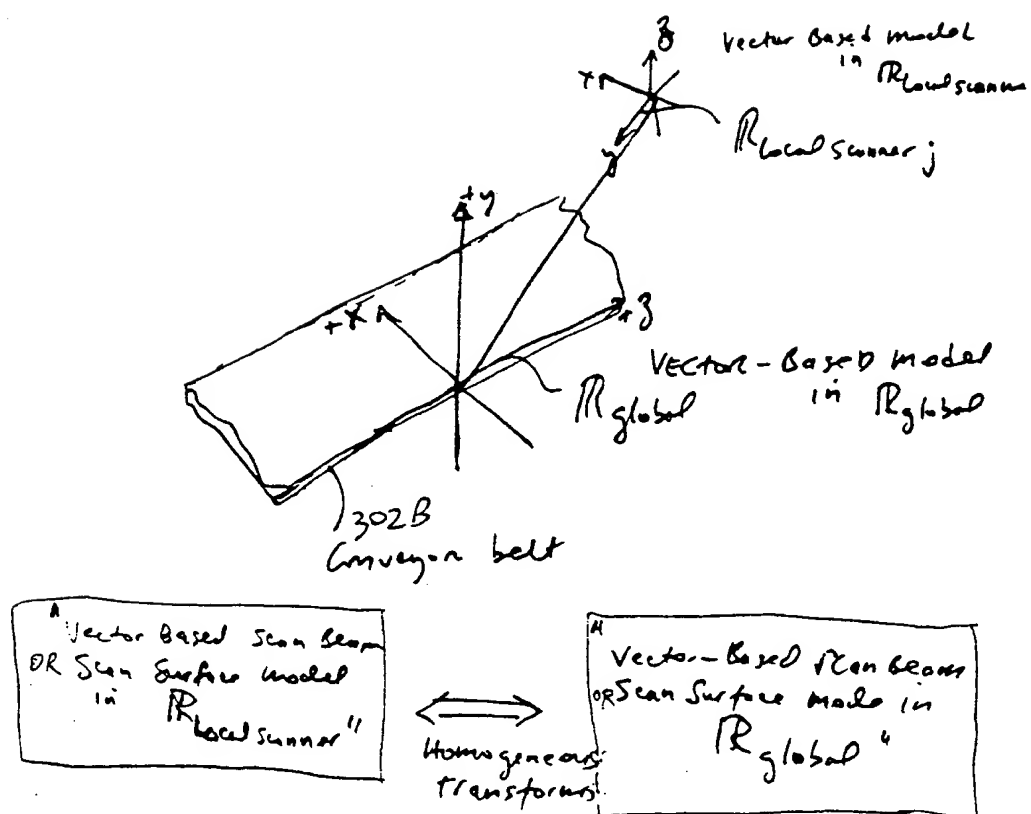 z
Vector Based model
in ℝ local scanner
x
y
ℝ local scanner j
+y
+x
+z
VECTOR-BASED model
in ℝ global
ℝ global
302B
Conveyor belt
"Vector Based Scan Beam
OR Scan Surface model
in ℝ local scanner"
Homogeneous
transforms
"Vector-Based Scan Beam
OR Scan Surface mode in
ℝ global"